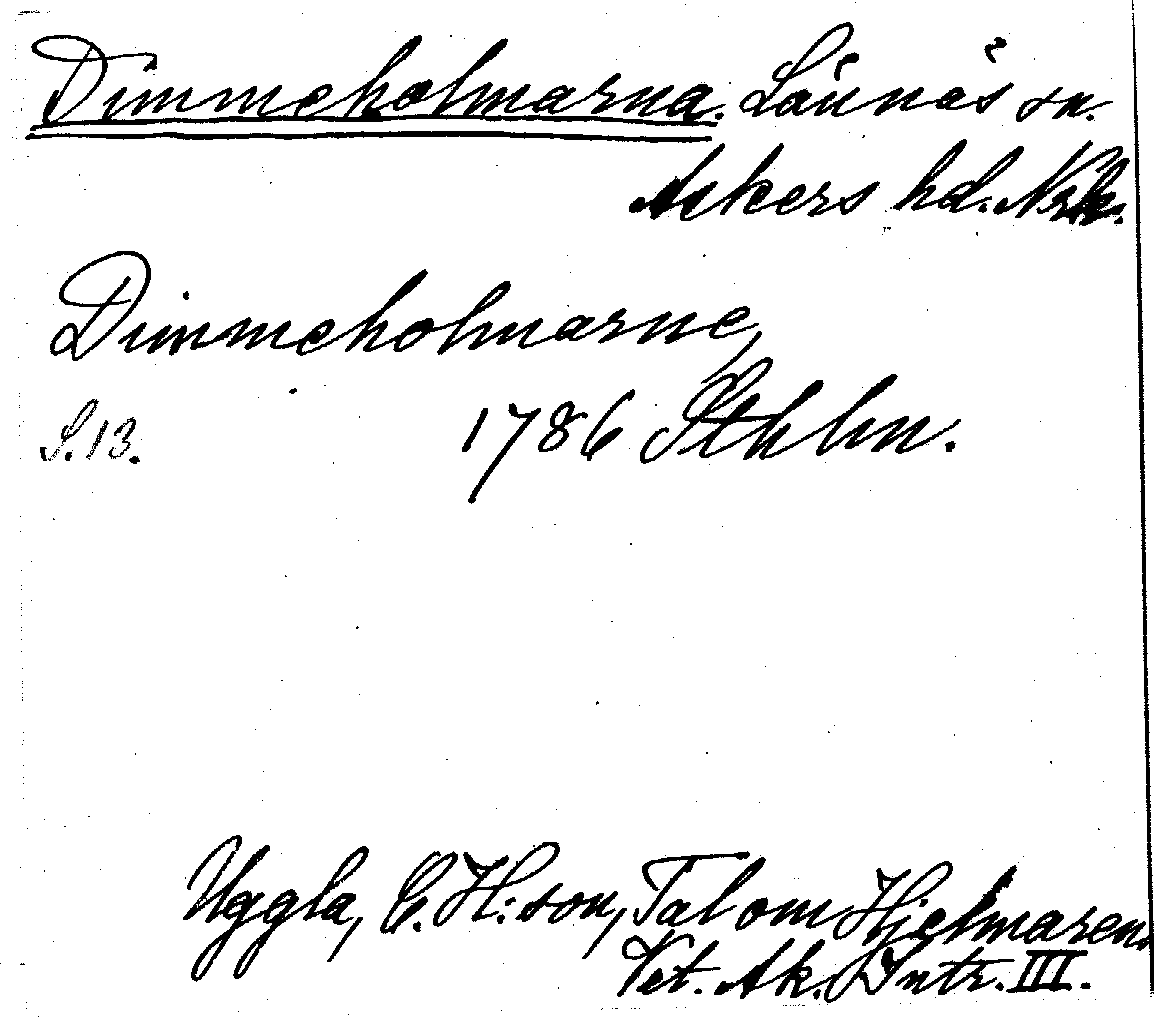 Dimmeholmarna. Lännäs sn.
Askers hd. Nrk.
Dimmeholmarne,
S. 13. 1786 Sthlm.
Uggla, C. H:son, Tal om Hjelmaren.
Vet. Ak. Intr. III.